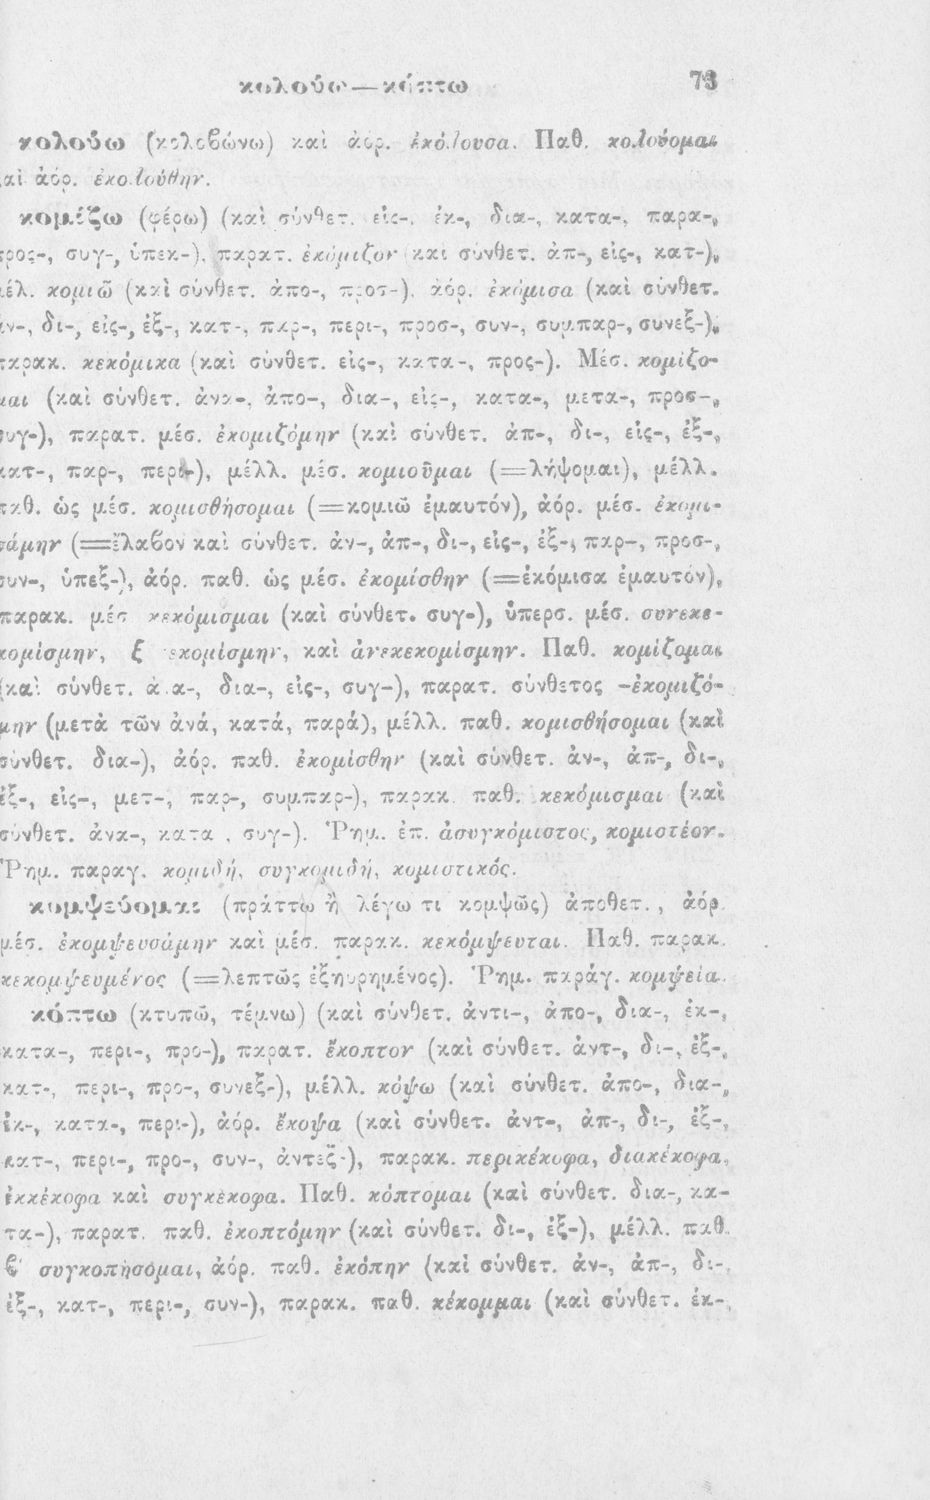 κολούω — κόπτω 73
κολούω (κολοβώνω) καὶ ἀόρ. ἐκόλουσα. Παθ. κολούομαι
καὶ ἀόρ. ἐκολούθην.
κομίζω (φέρω) (καὶ σύνθετ. εἰς-, ἐκ-, δια-, κατα-, παρα-,
προς-, συγ-, ὑπεκ-), παρατ. ἐκόμιζον (καὶ σύνθετ. ἀπ-, εἰς-, κατ-),
μέλ. κομιῶ (καὶ σύνθετ. ἀπο-, προσ-), ἀόρ. ἐκόμισα (καὶ σύνθετ.
ἀν-, δι-, εἰς-, ἐξ-, κατ-, παρ-, περι-, προσ-, συν-, συμπαρ-, συνεξ-),
παρακ. κεκόμικα (καὶ σύνθετ. εἰς-, κατα-, προς-). Μέσ. κομίζο-
μαι (καὶ σύνθετ. ἀνα-, ἀπο-, δια-, εἰς-, κατα-, μετα-, προσ-,
συγ-), παρατ. μέσ. ἐκομιζόμην (καὶ σύνθετ. ἀπ-, δι-, εἰς-, ἐξ-,
κατ-, παρ-, περι-), μέλλ. μέσ. κομιοῦμαι (=λήψομαι), μέλλ.
παθ. ὡς μέσ. κομισθήσομαι (=κομιῶ ἐμαυτόν), ἀόρ. μέσ. ἐκομι-
σάμην (=ἔλαβον καὶ σύνθετ. ἀν-, ἀπ-, δι-, εἰς-, ἐξ-, παρ-, προσ-,
συν-, ὑπεξ-), ἀόρ. παθ. ὡς μέσ. ἐκομίσθην (=ἐκόμισα ἐμαυτόν),
παρακ. μέσ κεκόμισμαι (καὶ σύνθετ. συγ-), ὑπερσ. μέσ. συνεκε-
κομίσμην, ξ εκομίσμην, καὶ ἀνεκεκομίσμην. Παθ. κομίζομαι
(καὶ σύνθετ. δια-, εἰς-, συγ-), παρατ. σύνθετος -ἐκομιζό-
μην (μετὰ τῶν ἀνά, κατά, παρά), μέλλ. παθ. κομισθήσομαι (καὶ
σύνθετ. δια-), ἀόρ. παθ. ἐκομίσθην (καὶ σύνθετ. ἀν-, ἀπ-, δι-,
ἐξ-, εἰς-, μετ-, παρ-, συμπαρ-), παρακ. παθ. κεκόμισμαι (καὶ
σύνθετ. ἀνα-, κατα , συγ-). Ῥημ. ἐπ. ἀσυγκόμιστος, κομιστέον.
Ῥημ. παραγ. κομιδή, συγκομιδή, κομιστικός.
κομψεύομαι (πράττω ἢ λέγω τι κομψῶς) ἀποθετ., ἀόρ.
μέσ. ἐκομψευσάμην καὶ μέσ. παρακ. κεκόμψευται. Παθ. παρακ.
κεκομψευμένος (=λεπτῶς ἐξηυρημένος). Ῥημ. παράγ. κομψεία.
κόπτω (κτυπῶ, τέμνω) (καὶ σύνθετ. ἀντι-, ἀπο-, δια-, ἐκ-,
κατα-, περι-, προ-), παρατ. ἔκοπτον (καὶ σύνθετ. ἀντ-, δι-, ἐξ-,
κατ-, περι-, προ-, συνεξ-), μέλλ. κόψω (καὶ σύνθετ. ἀπο-, δια-,
ἐκ-, κατα-, περι-), ἀόρ. ἔκοψα (καὶ σύνθετ. ἀντ-, ἀπ-, δι-, ἐξ-,
κατ-, περι-, προ-, συν-, ἀντεξ-), παρακ. περικέκοφα, διακέκοφα,
ἐκκέκοφα καὶ συγκέκοφα. Παθ. κόπτομαι (καὶ σύνθετ. δια-, κα-
τα-), παρατ. παθ. ἐκοπτόμην (καὶ σύνθετ. δι-, ἐξ-), μέλλ. παθ.
β΄ συγκοπήσομαι, ἀόρ. παθ. ἐκόπην (καὶ σύνθετ. ἀν-, ἀπ-, δι-,
ἐξ-, κατ-, περι-, συν-), παρακ. παθ. κέκομμαι (καὶ σύνθετ. ἐκ-,